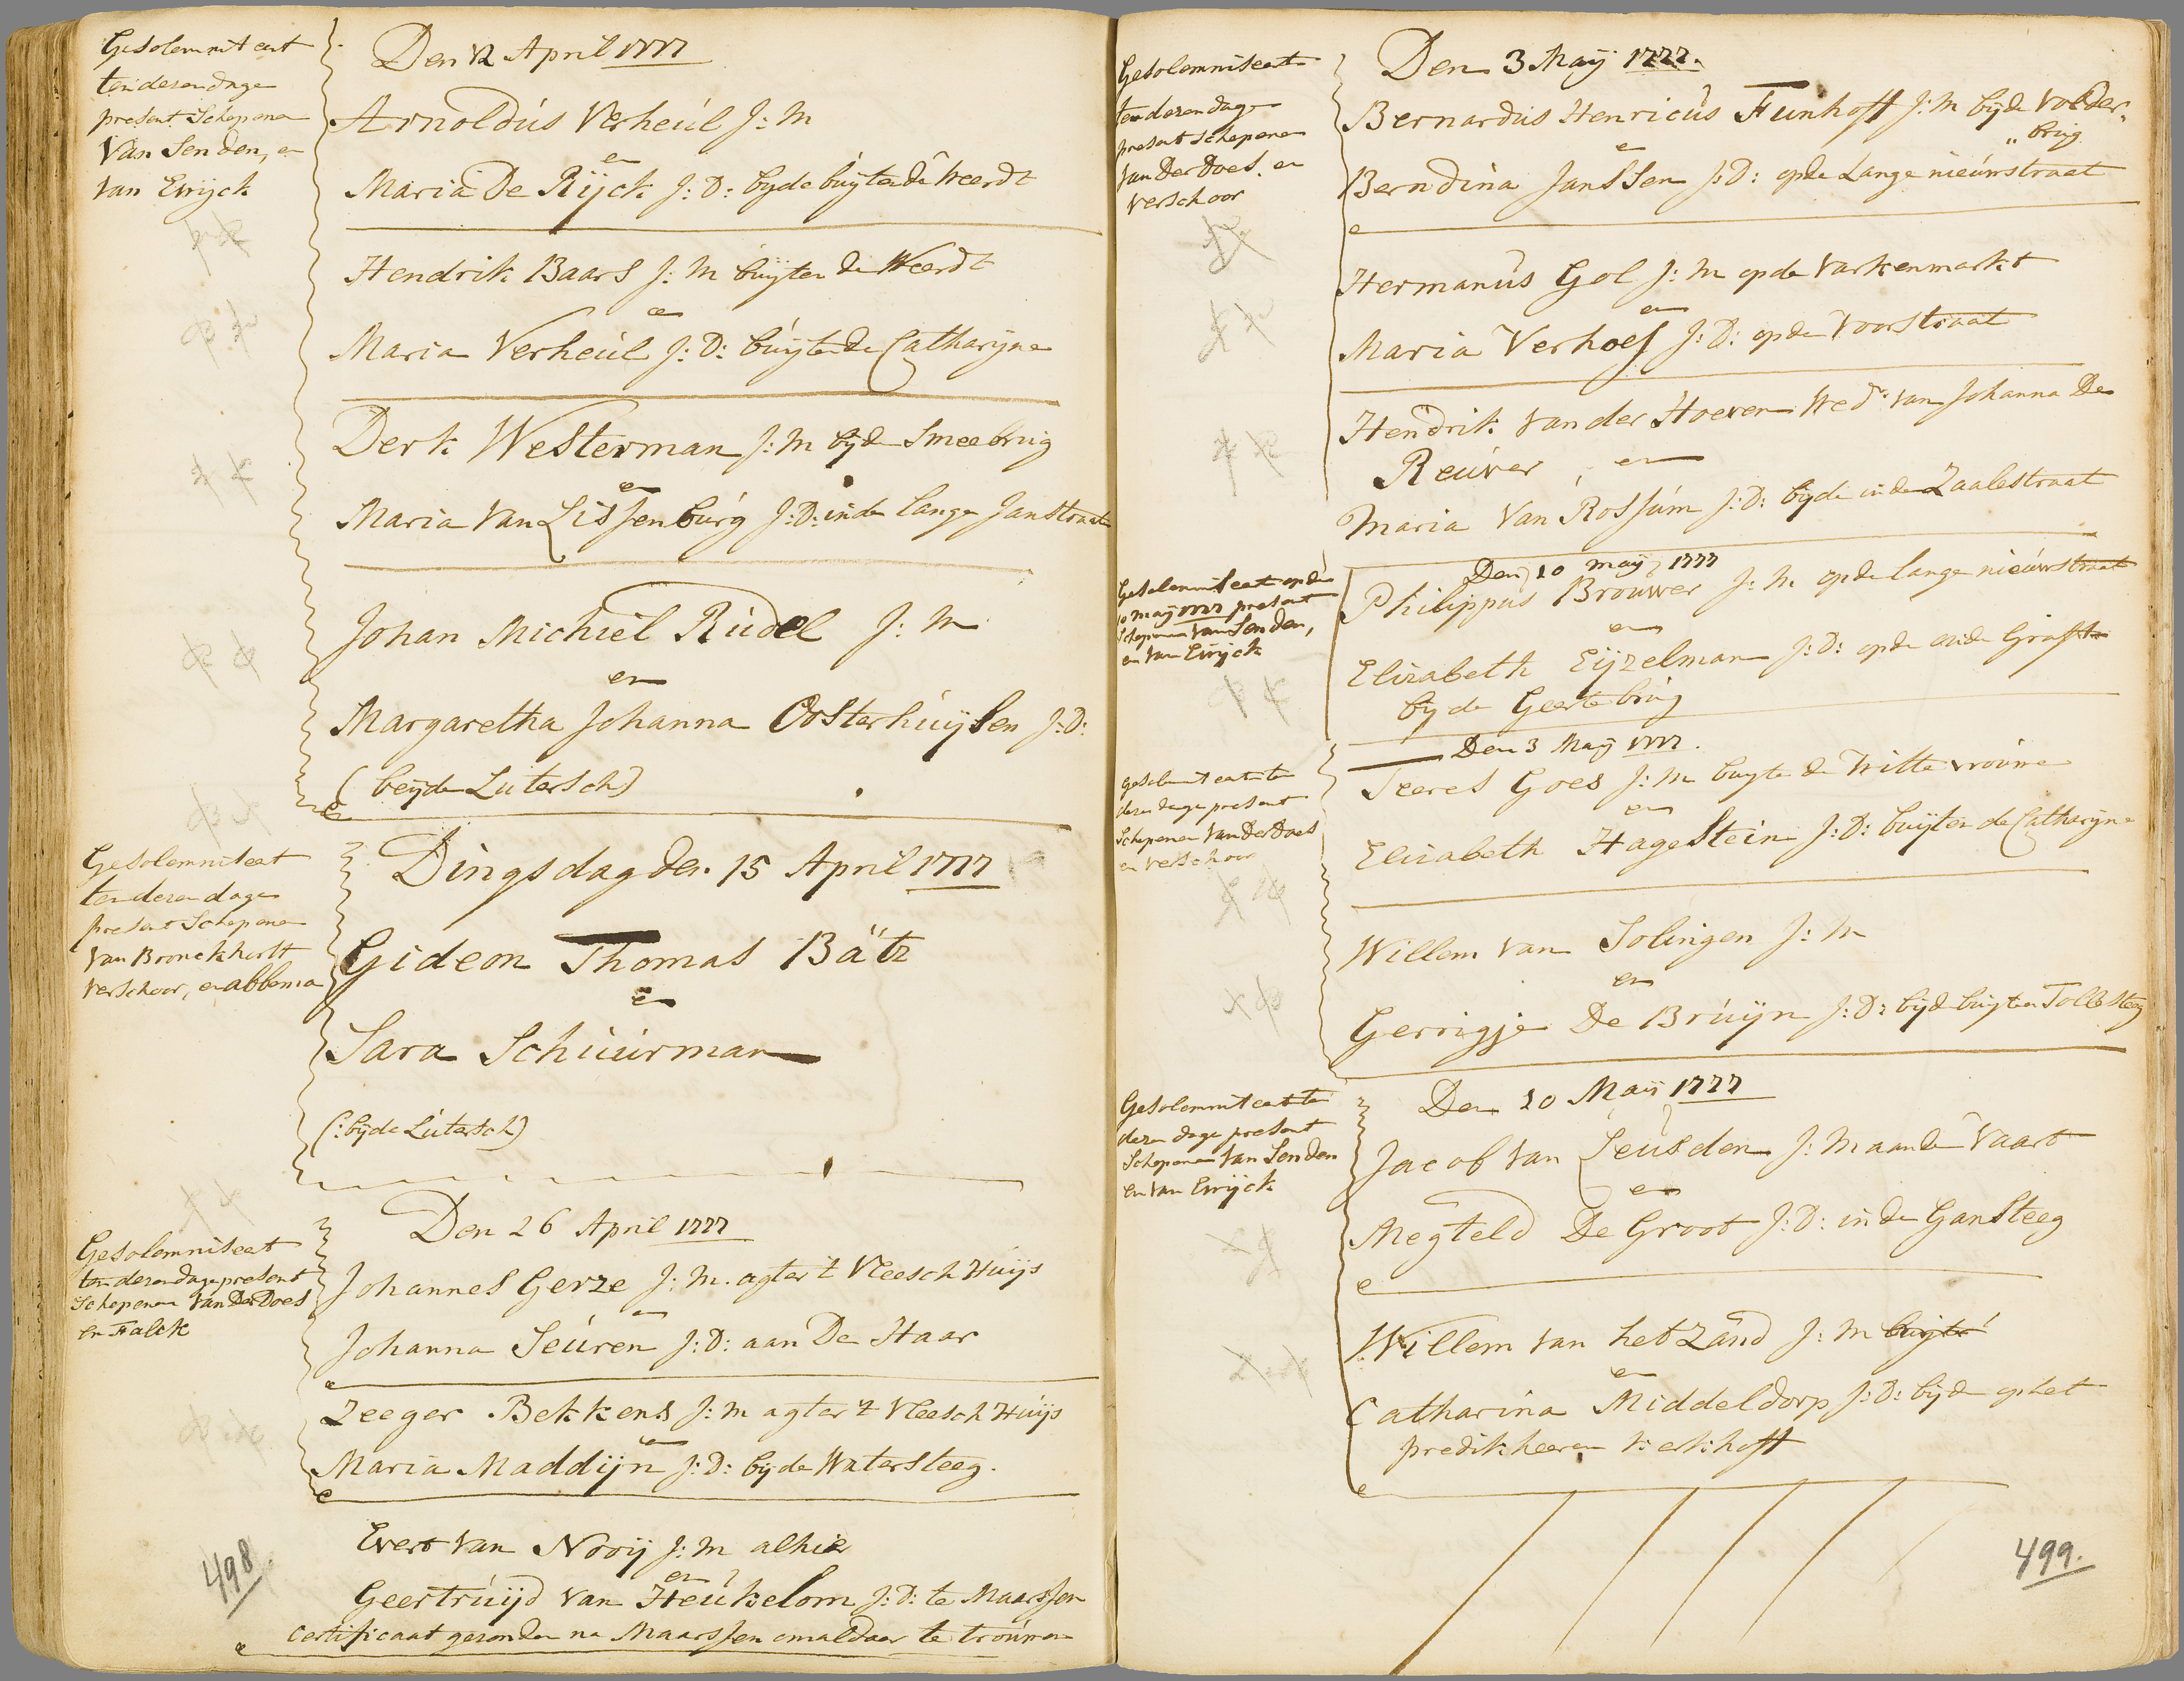 Gesolemniseert
ten deren dage
present Schepenen
Van Senden, en
Van Ewijck
Den 12 April 1777
Arnoldus Verheul J: M
en
Maria De Rijck J: D: byde buijten de Weerdt
Hendrik Baars J: M buijten de Weerdt
en
Maria Verheul J: D: buijten de Catharijne
Derk Westerman J: M bij de Smeebrug
en
Maria Van Lissenburg J: D: in de Lange Janstraat
Johan Michiel Rudel J: M
en
Margaretha Johanna Oosterhuijsen J: D:
(beijde Luters(ch)
Gesolemniseert
ten deren dage
present Schepenen
Van Bronckhorst
Verschoor, en abbema
Dingsdag den 15 April 1777
Gideon Thomas Bätz
en
Sara Schuurman
(: byde Lutersch)
Gesolemniseert
ten deren dage present
Schepenen Van Der Does
en Falck
Den 26 April 1777
Johannes Gerze J: M. agter 't Vleesch Huijs
en
Johanna Seuren J: D: aan De Haar
Zeeger Bekkens J: M agter 't Vleesch Huijs
en
Maria Maddijn J: D: bij de Watersteeg.
Evert Van Nooij J: M alhier
en
Geertruijd Van Heukelom J: D: te Maarssen
Certificaat gezonden na Maarssen om aldaer te trouwen
498
Gesolemniseert
ten deren dage
present Schepenen
Van Der Does en
Verschoor
Den 3 Maij 1777.
Bernardus Henricus Funhoff J: M bij de Volder
" brug
en
Berndina Janssen J: D: op de Lange nieuwstraat
Hermanus Gol J: M op de Varkenmarkt
en
Maria Verhoef J: D: op de Voorstraat
Hendrik Van der Hoeven Wedr. van Johanna De
Reuver en
Maria Van Rossum J: D: byde in de Zaalestraat
Gesolemniseert op den
10 maij 1777 present
Schepenen Van Senden,
en Van Ewijck
Den 10 maij 1777
Philippus Brouwer J: M op de Lange nieuwstraat
en
Elizabeth Eijzelman J: D: op de oude Graft
bij de Geertebrug
Gesolemniseert ten
deren dage present
Schepenen Van Der Does
en Verschoor
Den 3 Maij 1777.
Teeres Goes J: M buyten de Witte vrouwe
en
Elizabeth Hagestein J: D: buijten de Catharijne
Willem Van Solingen J: M
en
Gerrigje De Bruijn J: D: bijde buyten Tollesteeg
Gesolemniseert ten
deren dage present
Schepenen Van Senden
en Van Ewijck
Den 10 Maij 1777
Jacob Van Leusden J: M aan de Vaart
en
Megteld De Groot J: D: in de Gansteeg
Willem Van het Zand J: M buijten
en
Catharina Middeldorp J: D: bijde op het
predikheeren kerkhoff
499.